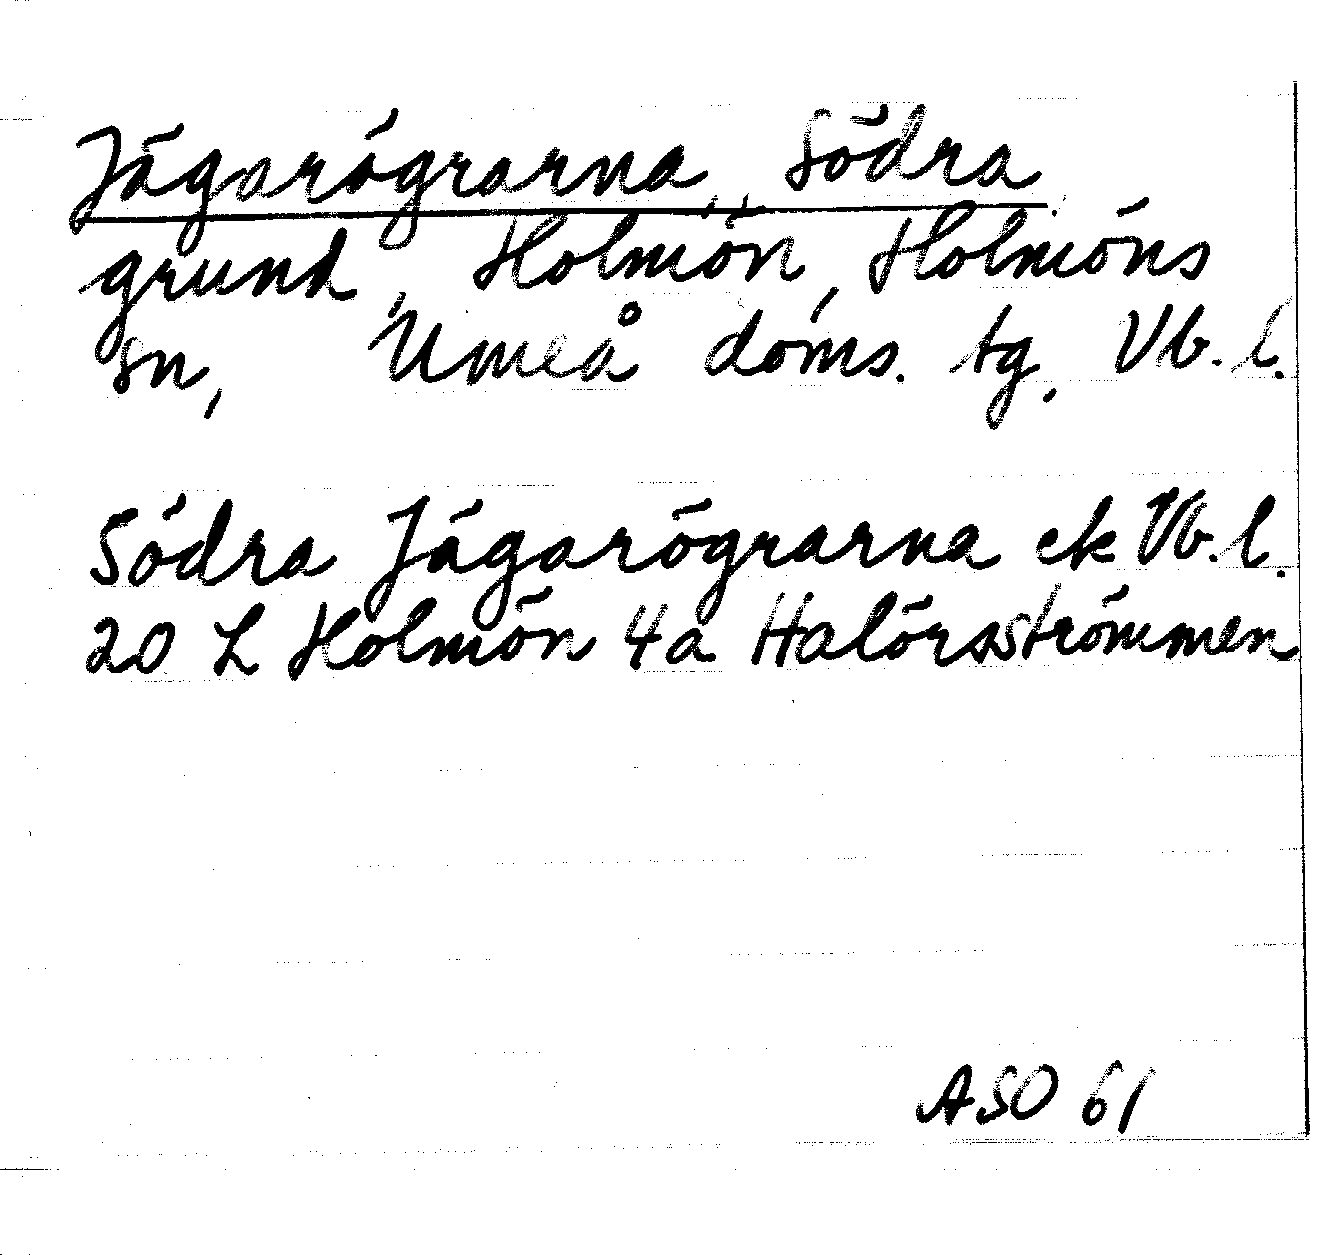 Jägarögrarna, Södra
grund, Holmön, Holmöns
sn, Umeå doms. tg. Vb. l.
Södra Jägarögrarna ek Vb. l.
20 L Holmön 4a Halörsströmmen
ASO 61